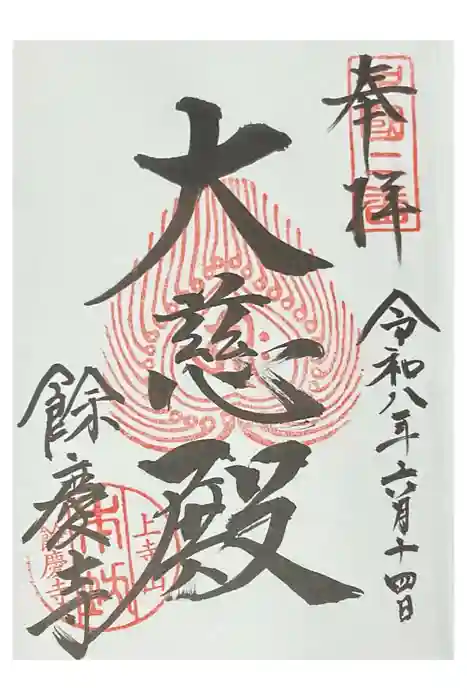 奉拝
令和八年六月十四日
大慈殿
餘慶寺
上寺山
餘慶寺